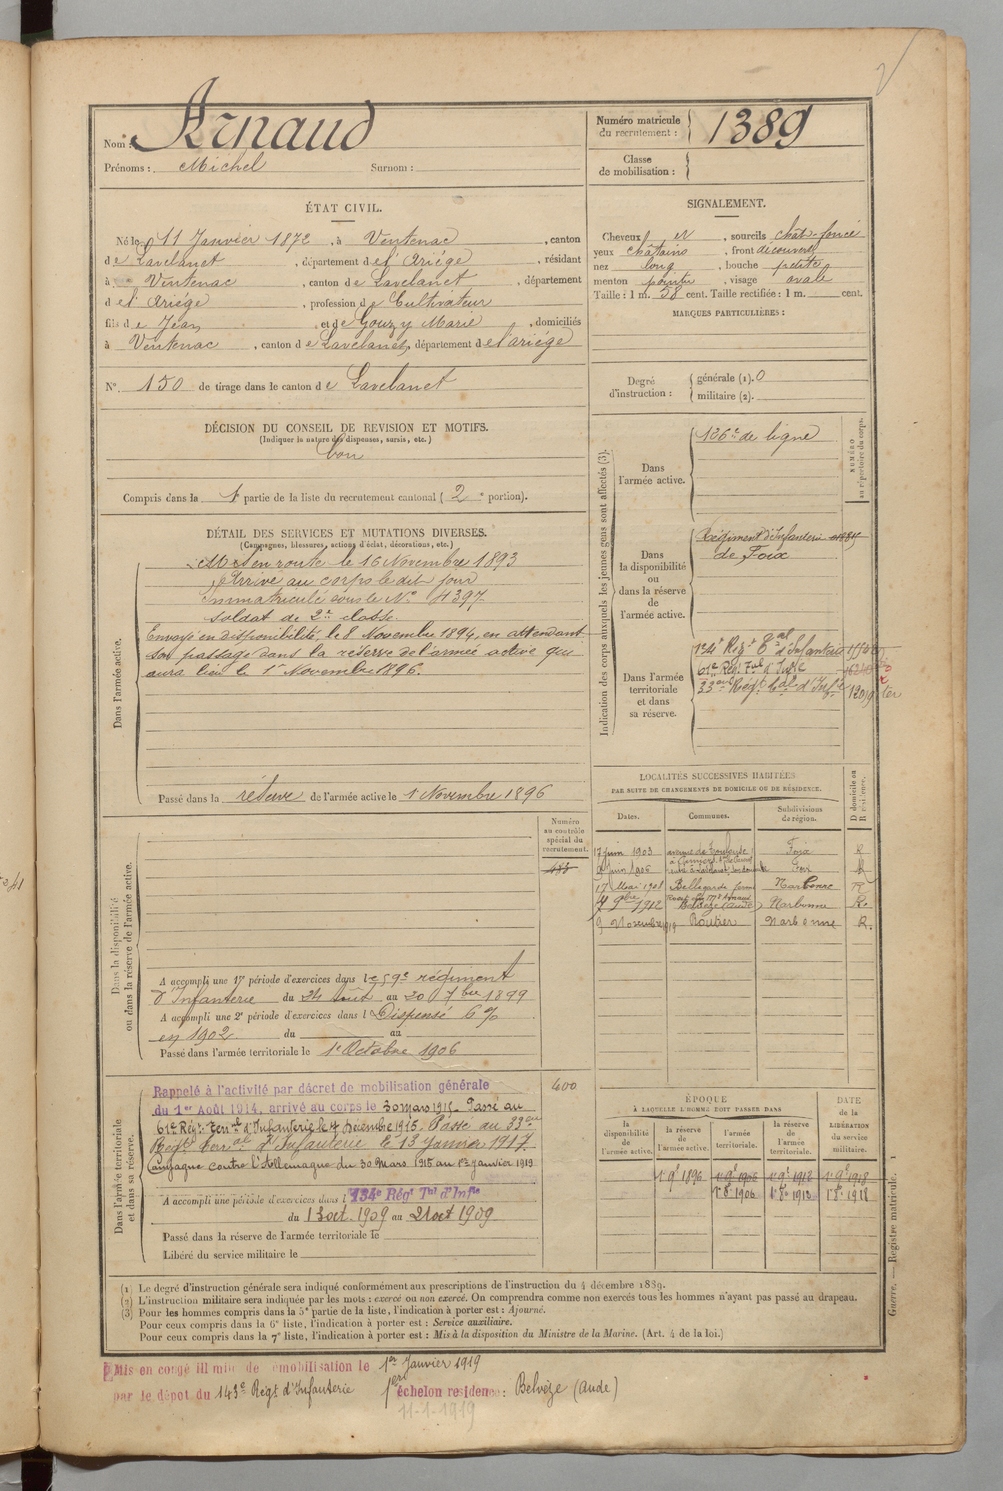 Nom : Arnaud
Prénoms : Michel Surnom :
Numéro matricule du recrutement : 1389
Classe de mobilisation :
ÉTAT CIVIL.
Né le 11 Janvier 1872, à Ventenac, canton
de Lavelanet, département de l'Ariège, résidant
à Ventenac, canton de Lavelanet, département
de l'Ariège, profession de Cultivateur
fils de Jean et de Gouzy Marie, domiciliés
à Ventenac, canton de Lavelanet, département de l'ariège
N° 150 de tirage dans le canton de Lavelanet
SIGNALEMENT.
Cheveux, sourcils chât-foncé
yeux châtains, front découvert
nez long, bouche petite
menton pointu, visage ovale
Taille : 1 m. 58 cent. Taille rectifiée : 1 m. cent.
MARQUES PARTICULIÈRES :
Degré d'instruction : générale (1). 0
militaire (2).
DÉCISION DU CONSEIL DE REVISION ET MOTIFS.
(Indiquer la nature des dispenses, sursis, etc.)
bon
Compris dans la 1e partie de la liste du recrutement cantonal (2e portion).
DÉTAIL DES SERVICES ET MUTATIONS DIVERSES.
(Campagnes, blessures, actions d'éclat, décorations, etc.)
Dans l'armée active.
Mis en route le 16 Novembre 1893
Arrivé au corps le dit jour
Immatriculé sous le N° 4397
soldat de 2e classe.
Envoyé en disponibilité, le 8 Novembre 1894, en attendant
son passage dans la réserve de l'armée active qui
aura lieu le 1er Novembre 1896.
Passé dans la réserve de l'armée active le 1 Novembre 1896
Indication des corps auxquels les jeunes gens sont affectés (3).
NUMÉRO au répertoire du corps.
Dans l'armée active.
126e de ligne
Dans la disponibilité ou dans la réserve de l'armée active.
Régiment d'Infanterie
de Foix
Dans l'armée territoriale et dans sa réserve.
134e Régt Tal d'Infanterie
61e Rég. Tal d'Infie
33eme Régt Tal d'Infie 12019 ter
LOCALITÉS SUCCESSIVES HABITÉES
PAR SUITE DE CHANGEMENTS DE DOMICILE OU DE RÉSIDENCE.
Dates. Communes. Subdivisions de région. D domicile ou R résidence.
17 juin 1903 avenue de Toulouse Foix R
Juin 1906 Foix R
17 Mai 1908 Bellegarde Narbonne R
7 9bre 1912 Belvèze (aude) Narbonne R.
9 Novembre Routier Narbonne R.
Dans la disponibilité ou dans la réserve de l'armée active.
Numéro au contrôle spécial du recrutement.
A accompli une 1re période d'exercices dans le 59e régiment
d'Infanterie du 24 août au 20 7bre 1899
A accompli une 2e période d'exercices dans l Dispensé 6%
en 1902 du au
Passé dans l'armée territoriale le 1er Octobre 1906
Dans l'armée territoriale et dans sa réserve.
400
Rappelé à l'activité par décret de mobilisation générale
du 1er Août 1914, arrivé au corps le 30 mars 1915. Passé au
61e Régt. Terral d'Infanterie le 7 Décembre 1915. Passé au 33eme
Régt Terral d'Infanterie le 13 Janvier 1917.
Campagne contre l'Allemagne du 30 Mars 1915 au 1er Janvier 1919
A accompli une période d'exercices dans l 134e Régt Tal d'Infie
du 13 oct. 1909 au 21 oct 1909
Passé dans la réserve de l'armée territoriale le
Libéré du service militaire le
ÉPOQUE
À LAQUELLE L'HOMME DOIT PASSER DANS
DATE de la LIBÉRATION du service militaire.
la disponibilité de l'armée active. la réserve de l'armée active. l'armée territoriale. la réserve de l'armée territoriale.
1896 1906 1912 1918
1906 1918
(1) Le degré d'instruction générale sera indiqué conformément aux prescriptions de l'instruction du 4 décembre 1889.
(2) L'instruction militaire sera indiquée par les mots : exercé ou non exercé. On comprendra comme non exercés tous les hommes n'ayant pas passé au drapeau.
(3) Pour les hommes compris dans la 5e partie de la liste, l'indication à porter est : Ajourné.
Pour ceux compris dans la 6e liste, l'indication à porter est : Service auxiliaire.
Pour ceux compris dans la 7e liste, l'indication à porter est : Mis à la disposition du Ministre de la Marine. (Art. 4 de la loi.)
Guerre. — Registre matricule. 1
Mis en congé illimité de démobilisation le 1er Janvier 1919
par le dépôt du 143e Régt d'Infanterie 1er échelon résidence : Belvèze (Aude)
11-1-1919